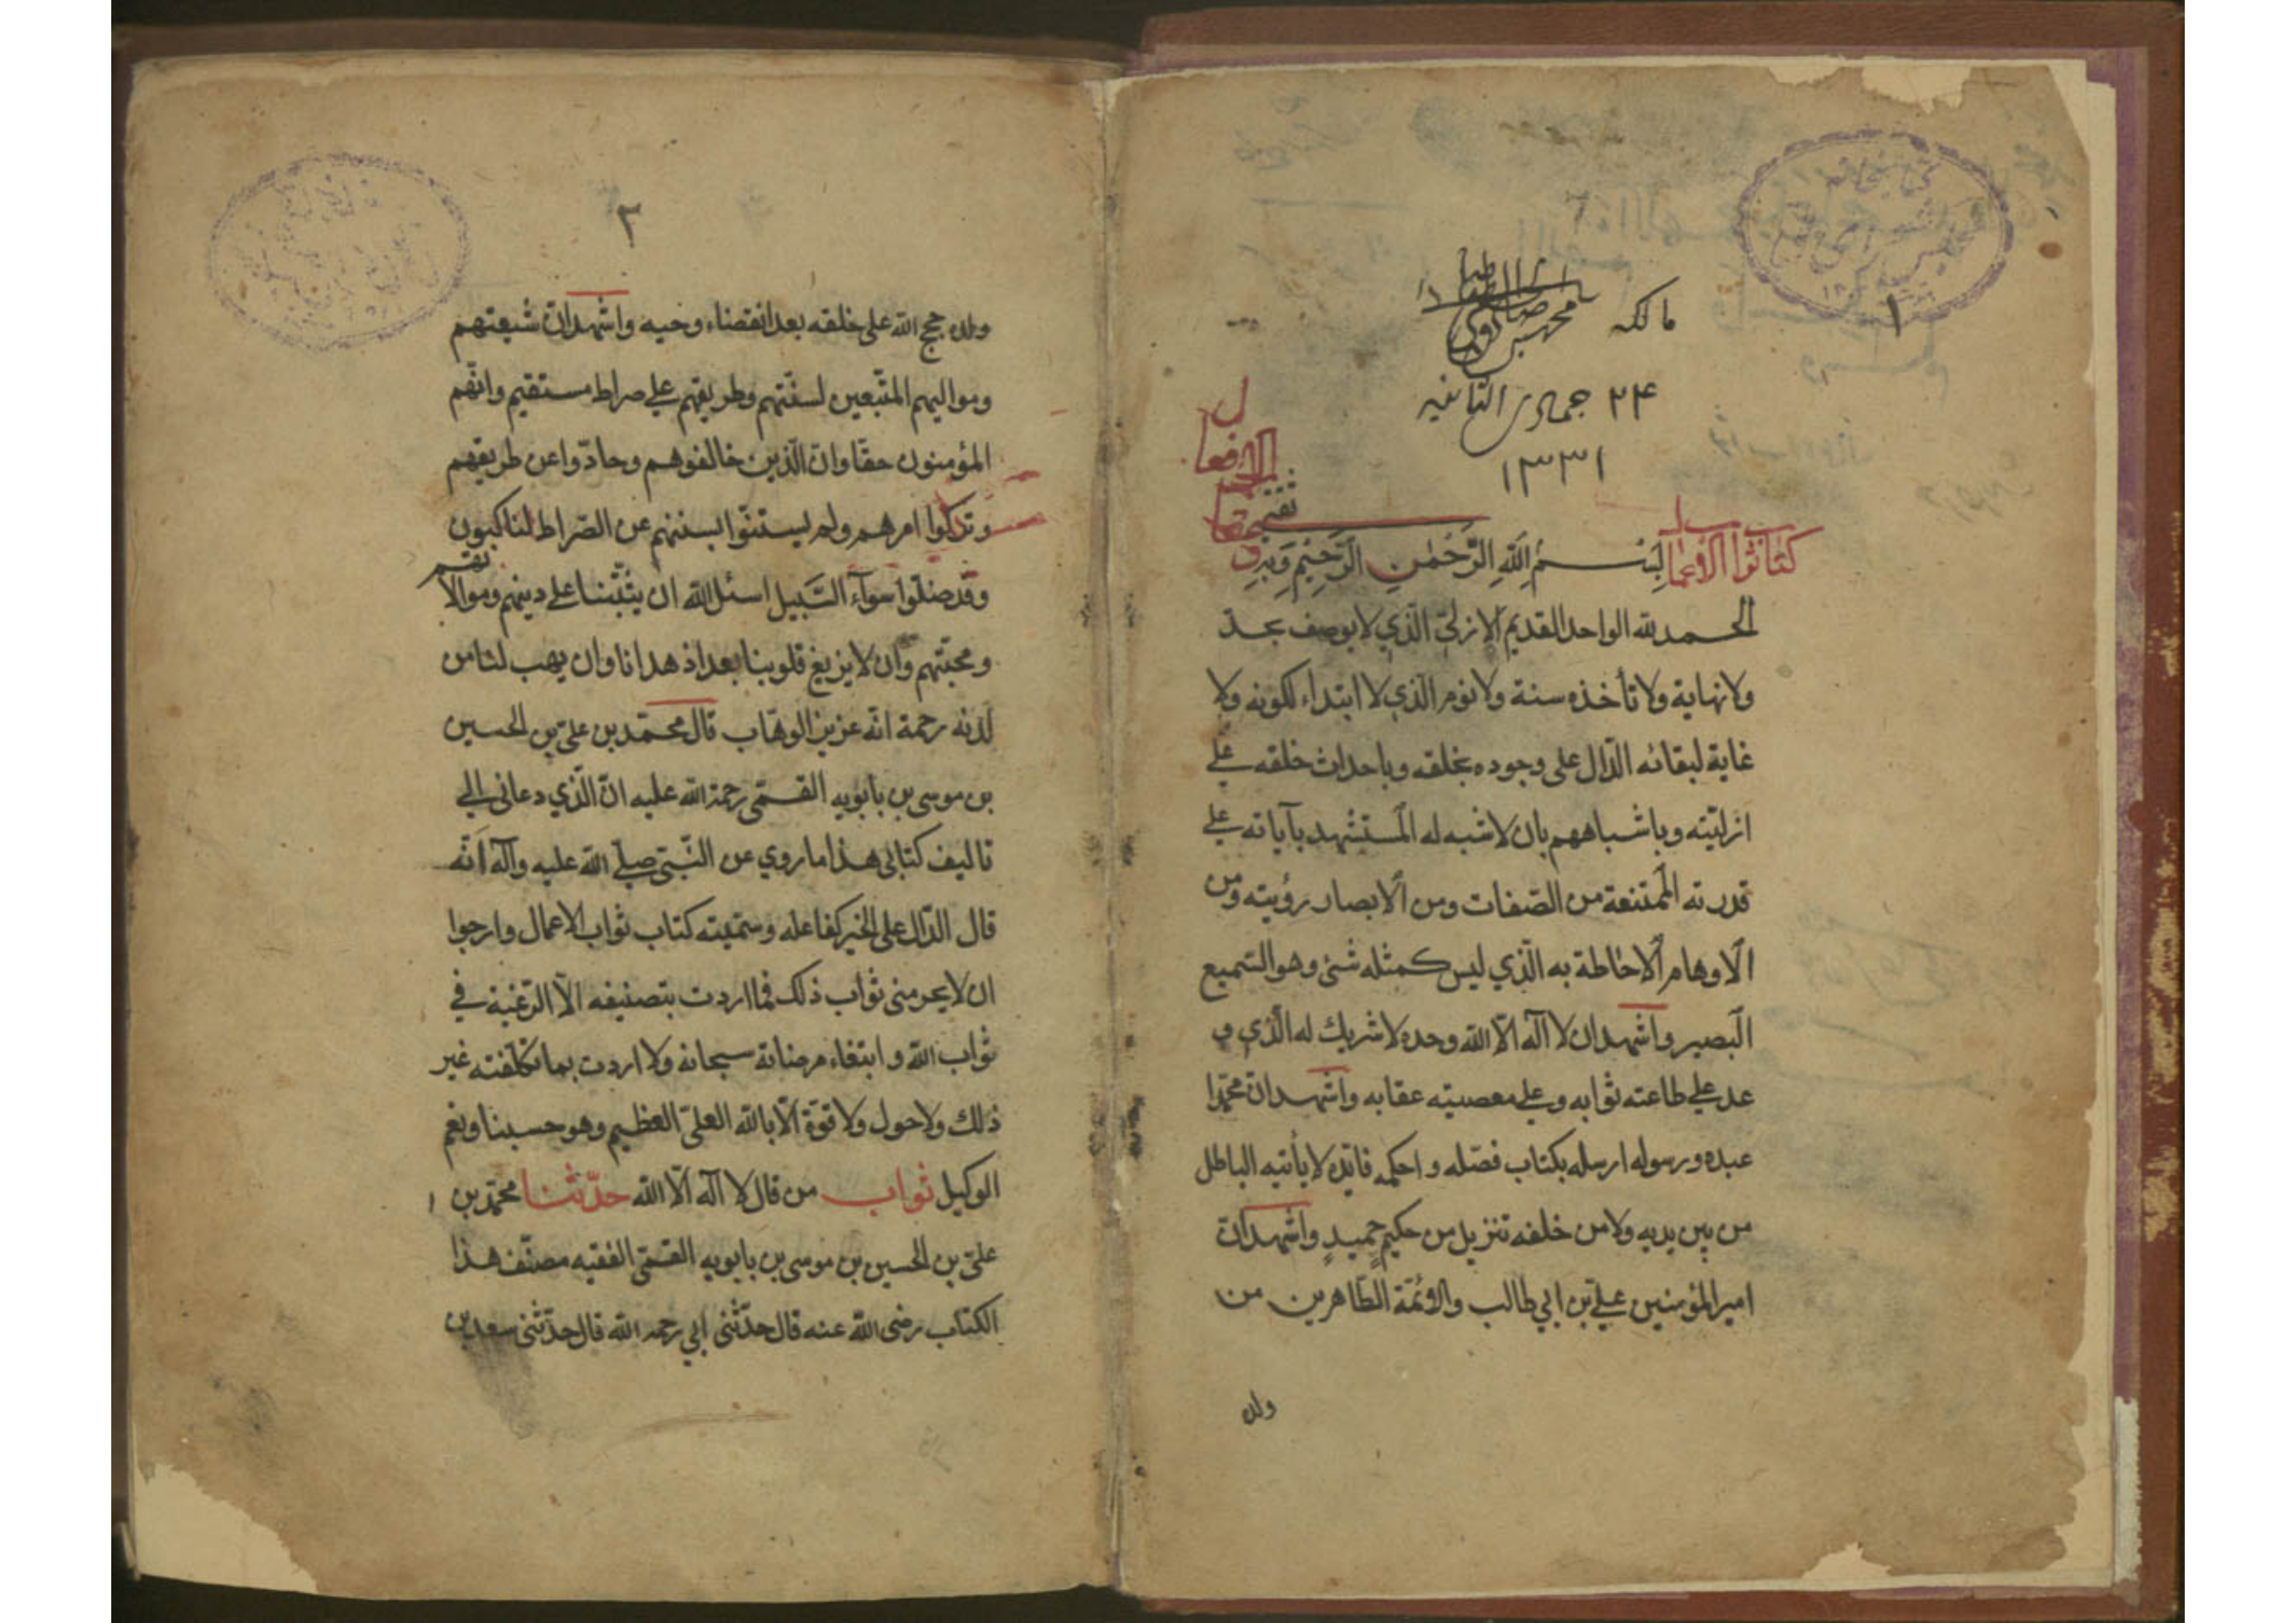 ١
مالكه
٢٤ جمادى الثانيه
١٣٣١
كتاب ثواب الاعمال
بسم الله الرَّحْمٰنِ الرَّحِيْمِ وَبِهِ
الحمد لله الواحد القديم الازليّ الّذي لا يوصف بحدّ
ولا نهاية ولا تأخذه سنة ولا نوم الّذي لا ابتداء لكونه ولا
غاية لبقائه الدّال على وجوده بخلقه وباحداث خلقه على
ازليّته وباشباههم بان لا شبه له المستشهد بآياته على
قدرته الممتنعة من الصّفات ومن الابصار رؤيته ومن
الاوهام الاحاطة به الّذي ليس كمثله شئ وهو السّميع
البصير واشهد ان لا آله الّا الله وحده لا شريك له الّذي و
عد على طاعته ثوابه وعلى معصيته عقابه واشهد انّ محمّدا
عبده ورسوله ارسله بكتاب فصّله واحكمه لا يأتيه الباطل
من بين يديه ولا من خلفه تنزيل من حكيمٍ حميدٍ واشهد انّ
امير المؤمنين عليّ بن ابي طالب والائمّة الطّاهرين من
ولده
٢
ولده حجج الله على خلقه بعد انقضاء وحيه واشهد انّ شيعتهم
ومواليهم المتّبعين لسنّتهم وطريقهم على صراط مستقيم وانّهم
المؤمنون حقّا وان الّذين خالفوهم وحادّوا عن طريقهم
وتركوا امرهم ولم يستنّوا بسننهم عن الصّراط لناكبون
وقد ضلّوا سوآء السَّبيل اسئل الله ان يثبّتنا على دينهم وموالاتهم
ومحبّتهم وان لا يزيغ قلوبنا بعد اذ هدانا وان يهب لنا من
لدنه رحمة انّه عزيز الوهّاب قال محمّد بن عليّ بن الحسين
بن موسى بن بابويه القمّي رحمة الله عليه انّ الّذي دعاني الى
تاليف كتابي هذا ما روي عن النّبيّ صلّى الله عليه وآله انّه
قال الدّال على الخير كفاعله وسمّيته كتاب ثواب الاعمال وارجوا
ان لا يحرمني ثواب ذلك فما اردت بتصنيفه الّا الرّغبة في
ثواب الله وابتغاء مرضاته سبحانه ولا اردت بما تكلّفته غير
ذلك ولا حول ولا قوّة الّا بالله العليّ العظيم وهو حسبنا ونعم
الوكيل ثواب من قال لا آله الّا الله حدّثنا محمّد بن
عليّ بن الحسين بن موسى بن بابويه القمّي الفقيه مصنّف هذا
الكتاب رضي الله عنه قال حدّثني ابي رحمه الله قال حدّثني سعد بن